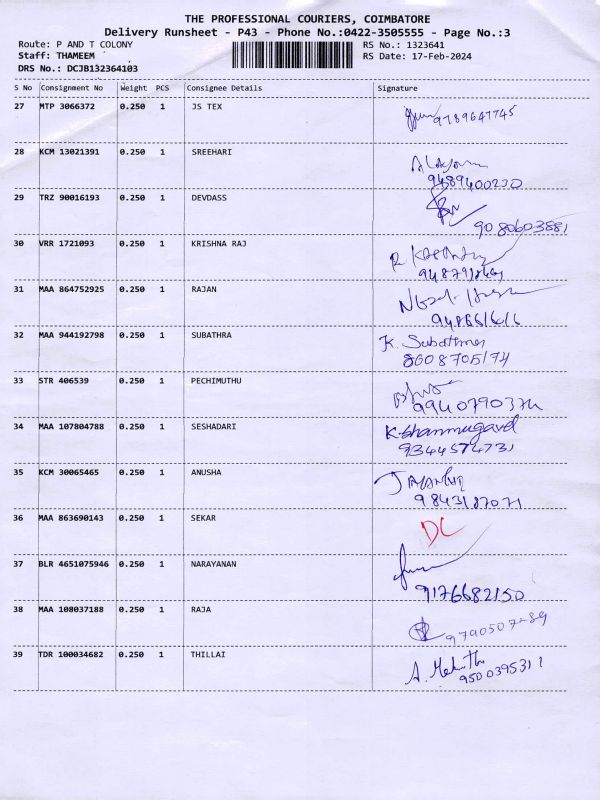 THE PROFESSIONAL COURIERS, COIMBATORE
Delivery Runsheet - P43 - Phone No.:0422-3505555 - Page No.:3
Route: P AND T COLONY RS No.: 1323641
Staff: THAMEEM RS Date: 17-Feb-2024
DRS No.: DCJB132364103
S No Consignment No Weight PCS Consignee Details Signature
27 MTP 3066372 0.250 1 JS TEX
9789647745
28 KCM 13021391 0.250 1 SREEHARI
9489400230
29 TRZ 90016193 0.250 1 DEVDASS
9080603881
30 VRR 1721093 0.250 1 KRISHNA RAJ
31 MAA 864752925 0.250 1 RAJAN
32 MAA 944192798 0.250 1 SUBATHRA
K. Subathra
8608705174
33 STR 406539 0.250 1 PECHIMUTHU
9940790374
34 MAA 107804788 0.250 1 SESHADARI
K. Shanmugavel
9344574731
35 KCM 30065465 0.250 1 ANUSHA
9843187071
36 MAA 863690143 0.250 1 SEKAR
DC
37 BLR 4651075946 0.250 1 NARAYANAN
9176682150
38 MAA 108037188 0.250 1 RAJA
39 TDR 100034682 0.250 1 THILLAI
9500395311